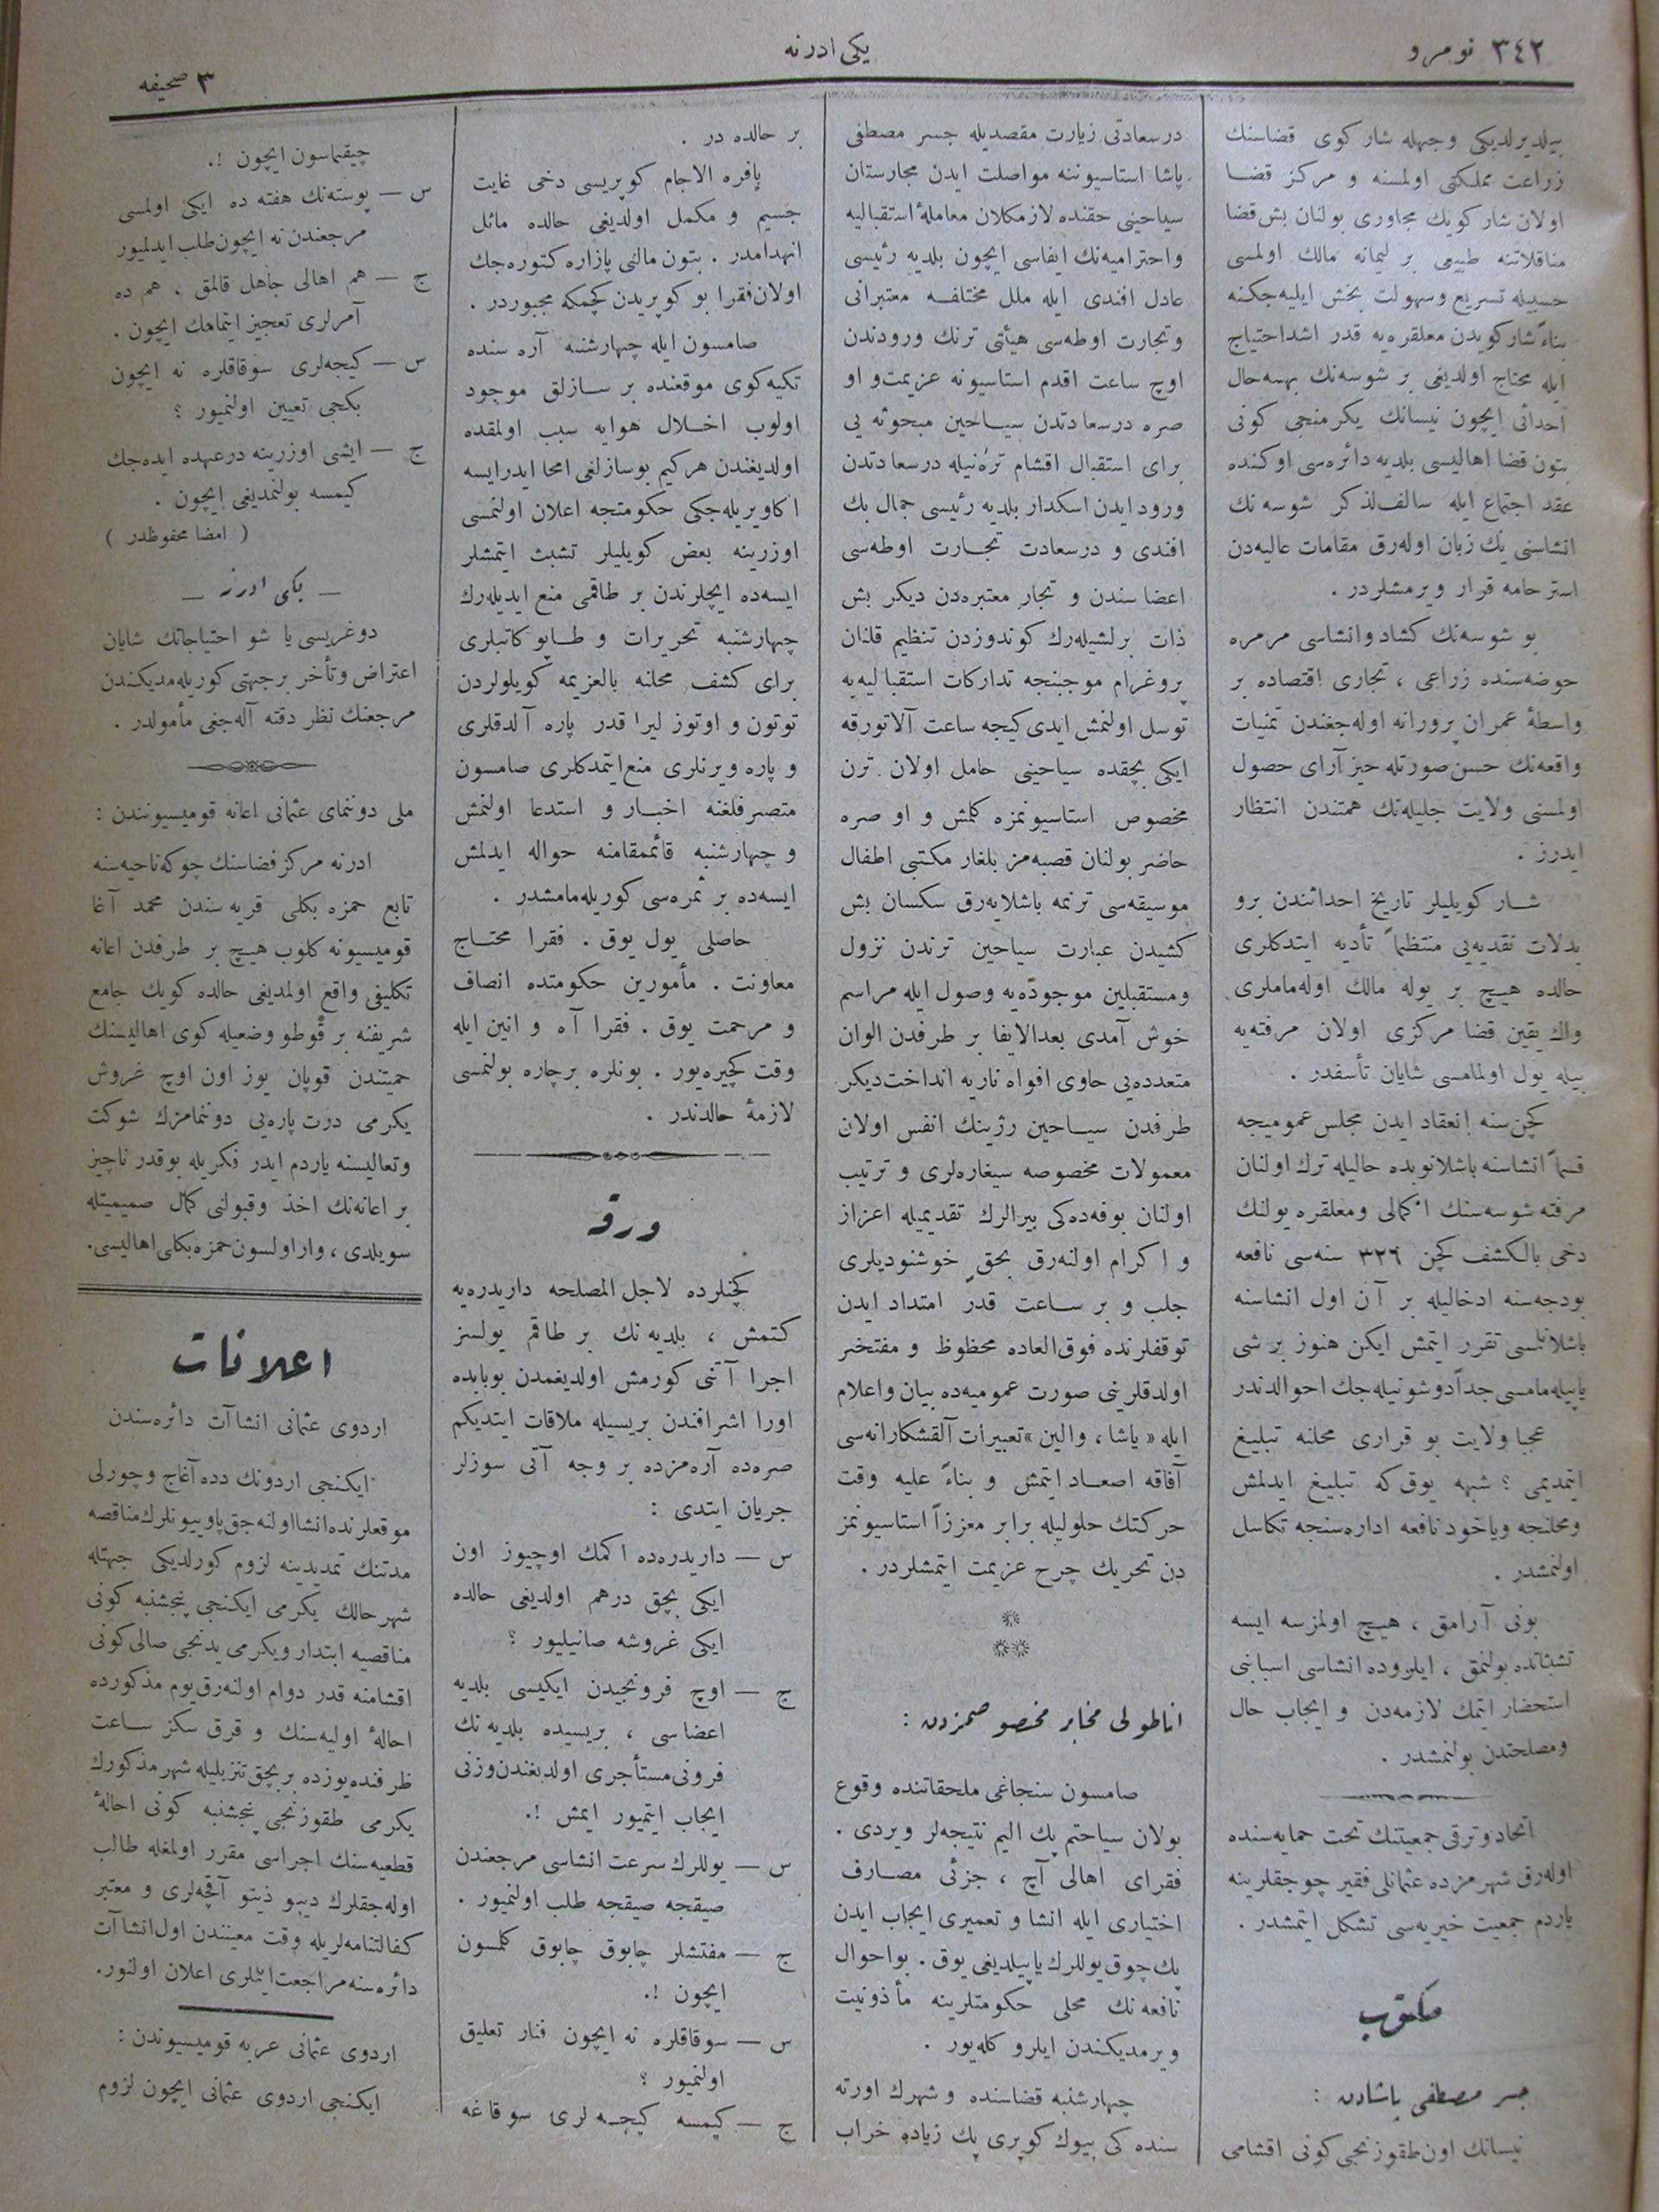 ٣٤٢ نومرو
یکی ادرنه
٣ صحیفه
بیلدیرلدیکی وجهله شار کوی قضاسنك
زراعت مملکتی اولمسنه و مرکز قضا
اولان شار کویك مجاوری بولنان بش قضا
مناقلاتنه طبیعی بر لیمانه مالك اولمسی
حسبیله تسریع و سهولت بخش ایلیه جکنه
بناءً شار کویدن معلقره یه قدر اشد احتیاج
ایله محتاج اولدیغی بر شوسه نك بهمه حال
احداثی ایچون نیسانك یکرمنجی کونی
بتون قضا اهالیسی بلدیه دائره سی اوکنده
عقد اجتماع ایله سالف الذکر شوسه نك
انشاسنی یك زبان اوله رق مقامات عالیه دن
استرحامه قرار ویرمشلردر .
بو شوسه نك کشاد وانشاسی مرمره
حوضه سنده زراعی ، تجاری اقتصاده بر
واسطهٔ عمران پرورانه اوله جغندن تمنیات
واقعه نك حسن صورتله حیز آرای حصول
اولمسنی ولایت جلیله نك همتندن انتظار
ایدرز .
شار کویلیلر تاریخ احداثندن برو
بدلات نقدیه یی منتظماً تأدیه ایتدکلری
حالده هیچ بر یوله مالك اوله ماملری
واك یقین قضا مرکزی اولان مرفته یه
بیله یول اولمامسی شایان تأسفدر .
کچن سنه انعقاد ایدن مجلس عمومیجه
قسماً انشاسنه باشلانوبده حالیله ترك اولنان
مرفته شوسه سنك اکمالی ومعلقره یولنك
دخی بالکشف کچن ٣٢٦ سنه سی نافعه
بودجه سنه ادخالیله بر آن اول انشاسنه
باشلانلمسی تقرر ایتمش ایکن هنوز بر شی
یاپیله مامسی جداً دوشونیله جك احوالدندر
عجبا ولایت بو قراری محلنه تبلیغ
ایتمدیمی ؟ شبهه یوق که تبلیغ ایدلمش
ومحلنجه ویاخود نافعه اداره سنجه تکاسل
اولنمشدر .
بونی آرامق ، هیچ اولمزسه ایسه
تشبثاتده بولنمق ، ایلروده انشاسی اسبابنی
استحضار ایتمك لازمه دن و ایجاب حال
ومصلحتدن بولنمشدر .
اتحاد وترقی جمعیتنك تحت حمایه سنده
اوله رق شهرمزده عثمانلی فقیر چوجقلرینه
یاردم جمعیت خیریه سی تشکل ایتمشدر .
مکتوب
جسر مصطفی پاشادن :
نیسانك اون طقوزنجی کونی اقشامی
درسعادتی زیارت مقصدیله جسر مصطفی
پاشا استاسیوننه مواصلت ایدن مجارستان
سیاحینی حقنده لازمکلان معاملهٔ استقبالیه
واحترامیه نك ایفاسی ایچون بلدیه رئیسی
عادل افندی ایله ملل مختلفه معتبرانی
وتجارت اوطه سی هیأتی ترنك ورودندن
اوچ ساعت اقدم استاسیونه عزیمت و او
صره درسعادتدن سیاحین مبحوثه یی
برای استقبال اقشام ترنیله درسعادتدن
ورود ایدن اسکدار بلدیه رئیسی جمال بك
افندی و درسعادت تجارت اوطه سی
اعضاسندن و تجار معتبره دن دیکر بش
ذات برلشیله رك کوندوزدن تنظیم قلنان
پروغرام موجبنجه تدارکات استقبالیه یه
توسل اولنمش ایدی کیجه ساعت آلاتورقه
ایکی بچقده سیاحینی حامل اولان ترن
مخصوص استاسیونمزه کلمش و او صره
حاضر بولنان قصبه مز بلغار مکتبی اطفال
موسیقه سی ترنمه باشلایه رق سکسان بش
کشیدن عبارت سیاحین ترندن نزول
ومستقبلین موجوده یه وصول ایله مراسم
خوش آمدی بعد الایفا بر طرفدن الوان
متعدده یی حاوی افواه ناریه انداخت دیکر
طرفدن سیاحین رژینك انفس اولان
معمولات مخصوصه سیغاره لری و ترتیب
اولنان بوفه ده کی بیرالرك تقدیمیله اعزاز
و اکرام اولنه رق بحق خوشنودیلری
جلب و بر ساعت قدر امتداد ایدن
توقفلرنده فوق العاده محظوظ و مفتخر
اولدقلرینی صورت عمومیه ده بیان واعلام
ایله « یاشا ، والین » تعبیرات آلقشکارانه سی
آفاقه اصعاد ایتمش و بناءً علیه وقت
حرکتك حلولیله برابر معززاً استاسیونمز
دن تحریك چرخ عزیمت ایتمشلردر .
اناطولی مخابر مخصوصمزدن :
صامسون سنجاغی ملحقاتنده وقوع
بولان سیاحتم پك الیم نتیجه لر ویردی .
فقرای اهالی آچ ، جزئی مصارف
اختیاری ایله انشا و تعمیری ایجاب ایدن
پك چوق یوللرك یاپیلدیغی یوق . بو احوال
نافعه نك محلی حکومتلرینه مأذونیت
ویرمدیکندن ایلرو کله یور .
چهارشنبه قضاسنده و شهرك اورته
سنده کی بیوك کوپری پك زیاده خراب
بر حالده در .
بافره الاجام کوپریسی دخی غایت
جسیم و مکمل اولدیغی حالده مائل
انهدامدر . بتون مالنی پازاره کتوره جك
اولان فقرا بو کوپریدن کچمکه مجبوردر .
صامسون ایله چهارشنبه آره سنده
تکیه کوی موقعنده بر سازلق موجود
اولوب اخلال هوایه سبب اولمقده
اولدیغندن هر کیم بو سازلغی امحا ایدرایسه
اکا ویریله جکی حکومتجه اعلان اولنمسی
اوزرینه بعض کویلیلر تشبث ایتمشلر
ایسه ده ایچلرندن بر طاقمی منع ایدیله رك
چهارشنبه تحریرات و طاپو کاتبلری
برای کشف محلنه بالعزیمه کویلولردن
توتون و اوتوز لیرا قدر پاره آلدقلری
و پاره ویرنلری منع ایتمدکلری صامسون
متصرفلغنه اخبار و استدعا اولنمش
و چهارشنبه قائممقامنه حواله ایدلمش
ایسه ده بر ثمره سی کوریله مامشدر .
حاصلی یول یوق . فقرا محتاج
معاونت . مأمورین حکومتده انصاف
و مرحمت یوق . فقرا آه و انین ایله
وقت کچیره یور . بونلره بر چاره بولنمسی
لازمهٔ حالدندر .
ورقه
کچنلرده لاجل المصلحه داریدره یه
کتمش ، بلدیه نك بر طاقم یولسز
اجرا آتنی کورمش اولدیغمدن بوبابده
اورا اشرافندن بریسیله ملاقات ایتدیکم
صره ده آره مزده بر وجه آتی سوزلر
جریان ایتدی :
س — داریدره ده اکمك اوچیوز اون
ایکی بچق درهم اولدیغی حالده
ایکی غروشه صاتیلیور ؟
ج — اوچ فرونجیدن ایکیسی بلدیه
اعضاسی ، بریسیده بلدیه نك
فرونی مستأجری اولدیغندن وزنی
ایجاب ایتمیور ایمش !.
س — یوللرك سرعت انشاسی مرجعندن
صیقجه صیقجه طلب اولنمیور .
ج — مفتشلر چابوق چابوق کلمسون
ایچون !.
س — سوقاقلره نه ایچون فنار تعلیق
اولنمیور ؟
ج — کیمسه کیجه لری سوقاغه
چیقماسون ایچون !.
س — پوسته نك هفته ده ایکی اولمسی
مرجعندن نه ایچون طلب ایدلمیور
ج — هم اهالی جاهل قالمق ، هم ده
آمرلری تعجیز ایتمامك ایچون .
س — کیجه لری سوقاقلره نه ایچون
بکجی تعیین اولنمیور ؟
ج — ایشی اوزرینه درعهده ایده جك
کیمسه بولنمدیغی ایچون .
( امضا محفوظدر )
— یکی ادرنه —
دوغریسی یا شو احتیاجاتك شایان
اعتراض وتأخر بر جهتی کوریله مدیکندن
مرجعنك نظر دقته آله جغی مأمولدر .
ملی دوننمای عثمانی اعانه قومیسیونندن :
ادرنه مرکز قضاسنك چوکه ناحیه سنه
تابع حمزه بکلی قریه سندن محمد آغا
قومیسیونه کلوب هیچ بر طرفدن اعانه
تکلیفی واقع اولمدیغی حالده کویك جامع
شریفنه بر قوطو وضعیله کوی اهالیسنك
حمیتندن قوپان یوز اون اوچ غروش
یکرمی درت پاره یی دوننمامزك شوکت
وتعالیسنه یاردم ایدر فکریله بو قدر ناچیز
بر اعانه نك اخذ وقبولنی کمال صمیمیتله
سویلدی ، وار اولسون حمزه بکلی اهالیسی.
اعلانات
اردوی عثمانی انشاآت دائره سندن
ایکنجی اردونك دده آغاج وچورلی
موقعلرنده انشا اولنه جق پاویونلرك مناقصه
مدتنك تمدیدینه لزوم کورلدیکی جهتله
شهر حالك یکرمی ایکنجی پنجشنبه کونی
مناقصیه ابتدار ویکرمی یدنجی صالی کونی
اقشامنه قدر دوام اولنه رق یوم مذکورده
احالهٔ اولیه سنك و قرق سکز ساعت
ظرفنده یوزده بر بچق تنزیلیله شهر مذکورك
یکرمی طقوزنجی پنجشنبه کونی احالهٔ
قطعیه سنك اجراسی مقرر اولمغله طالب
اوله جقلرك دیپوزیتو آقچه لری و معتبر
کفالتنامه لریله وقت معینندن اول انشاآت
دائره سنه مراجعت ایتملری اعلان اولنور.
اردوی عثمانی عربه قومیسیوندن :
ایکنجی اردوی عثمانی ایچون لزوم